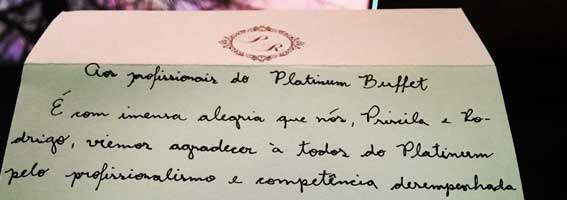 P R
Aos profissionais do Platinum Buffet
É com imensa alegria que nós, Priscila e Ro-
drigo, viemos agradecer à todos do Platinum
pelo profissionalismo e competência desempenhada